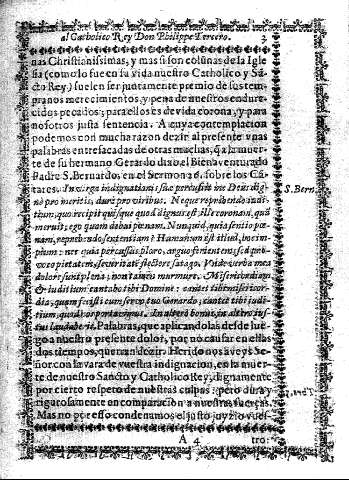 al Catholico Rey Don Philippe Tercero.
nas Christianissimas, y mas si son colũnas de la Igle
sia (como lo fue en su vida nuestro Catholico y Sã
cto Rey) suelen ser juntamente premio de sus tem
pranos merecimientos, y pena de nuestros endure-
cidos pecados; para ellos es devida corona, y para
nosotros justa sentencia. A cuya contemplacion
podemos con mucha razon dezir al presente vnas
palabras entresacadas de otras muchas, q̃ a la muer
te de su hermano Gerardo dixo el Bienaventurado
Padre S. Bernardo, en el Sermon 26. sobre los Cã
tares. In virga indignationis suæ percussit me Deus dig
nè pro meritis, durè pro viribus. Neque reprehendo iudi
tium, quo recipit quisque quod dignus est, ille coronam, quã
meruit; ego quam debui pœnam. Nunquid, quia sentio pœ-
nam, reprehendo sententiam? Humanum est illud, hoc im-
pium: nec quia percussus ploro, arguo ferientem, sed pro-
voco pietatem, severitatē flectere satago. Vnde verba mea
dolore sunt plena; non tamē murmure. Misericordiam
& iuditium cantabo tibi Domine: cantet tibi misericor-
dia, quam fecisti cum servo tuo Gerardo; cantet tibi iudi-
tium, quod nos portavimus. In altero bonus, in altero ius-
tus laudaberis. Palabras, que aplicandolas desde lue-
go a nuestro presente dolor, por no causar en ellas
dos tiempos, querran dezir. Herido nos aveys Se-
ñor con la vara de vuestra indignacion, en la muer
te de nuestro Sancto y Catholico Rey, dignamente
por cierto respeto de nuestras culpas; pero dura y
rigurosamente en comparacion a nuestras fuerças.
Mas no por esso condenamos el justo juyzio vues-
A 4
tro:
S. Bern.